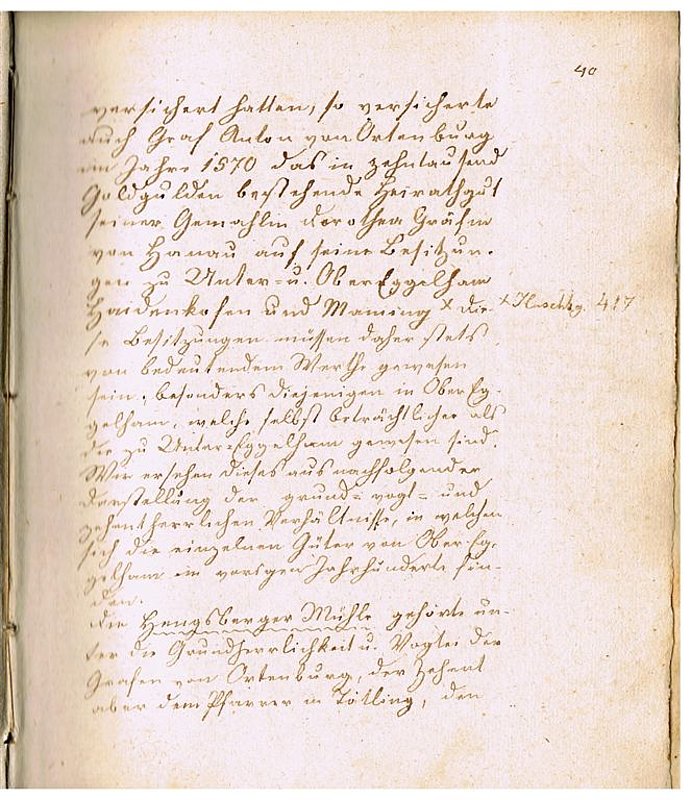 40
versichert hatten, so versicherte
auch Graf Anton von Ortenburg
im Jahre 1570 das in zehntausend
Goldgulden bestehende Heirathgut
seiner Gemahlin Dorothea Gräfin
von Hanau auf seine Besitzun-
gen zu Unter- u. OberEggelham
Haidenkofen und Maming x die- x Huschbg. 417
se Besitzungen müssen daher stets
von bedeutendem Werthe gewesen
sein, besonders diejenigen in Ober Eg-
gelham, welche selbst beträchtlicher als
die zu Unter-Eggelham gewesen sind.
Wir ersehen dieses aus nachfolgender
Darstellung der grund- vogt- und
zehentherrlichen Verhältnisse, in welchen
sich die einzelnen Güter von Ober-Eg-
gelham im vorigen Jahrhunderte fin-
den.
Die Hengsberger Mühle gehörte un-
ter die Grundherrlichkeit u. Vogtei der
Grafen von Ortenburg, der Zehent
aber dem Pfarrer in Tötling, den